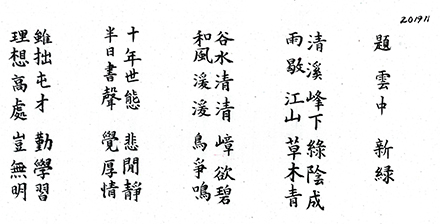 201911
題雲中新綠
清溪峰下綠陰成
雨歇江山草木青
谷水清清嶂欲碧
和風湲湲鳥爭鳴
十年世態悲聞靜
半日書聲覺厚情
雖拙屯才勤學習
理想高處豈無明